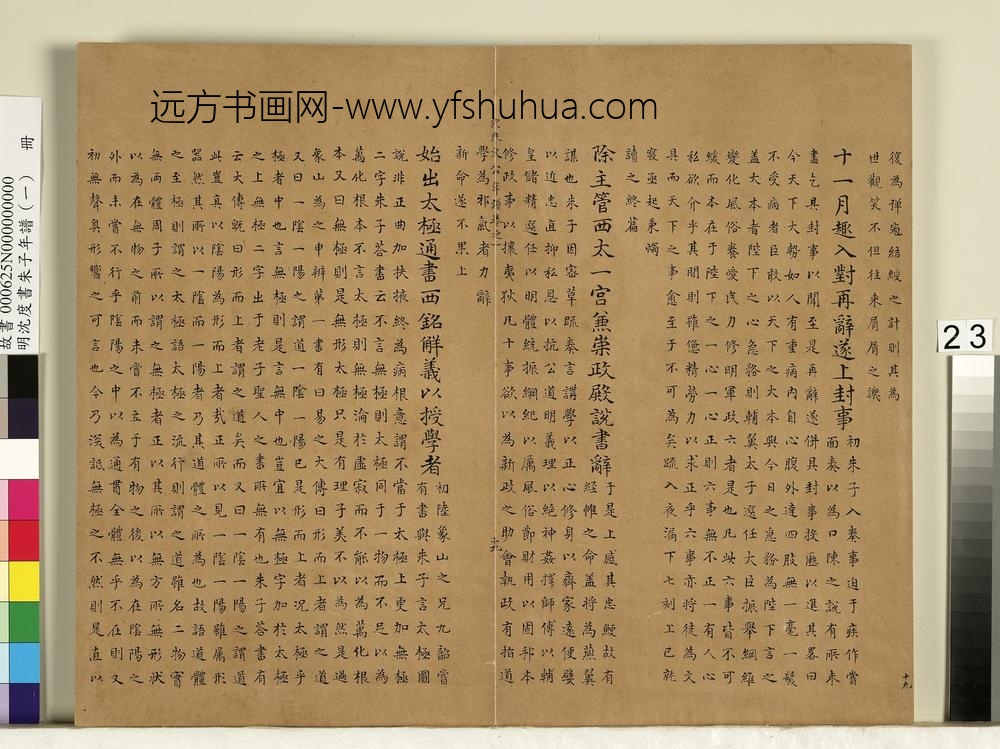 復為彈冠結綬之計則其為
世觀笑不但往來屑屑之譏
十一月趣入對再辭遂上封事初朱子入奏事迫于疾作嘗
面奏以為口陳之說有所未
盡乞具封事以聞至是再辭遂併具封事投匭以進其畧曰
今天下大勢如人有重病內自心腹外達四股無一毫一髮
不受病者臣敢以天下之大本與今日之急務為陛下言之
蓋大本者陛下之心急務則輔翼太子選任大臣振舉綱維
變化風俗養愛民力修明軍政六者是也凡此六事皆不可
緩而本在于陛下之一心一心正則六事無不正一有人心
私欲介乎其間則雖憊精勞力以求正乎六事亦將徒為文
具而天下之事愈至于不可為矣疏入夜漏下七刻上已就
寢亟起秉燭
讀之終篇
除主管西太一宮兼崇政殿說書辭于是上感其忠鯁故有
經帷之命蓋將為燕翼
謀也朱子因密草疏奏言講學以正心修身以齊家遠便嬖
以近忠直抑私恩以抗公道明義理以絕神姦擇師傅以輔
皇儲精選任以明體統振綱紀以厲風俗節財用以固邦本
修政事以攘夷狄凡十事欲以為新政之助會執政有指道
學為邪氣者力辭
新命遂不果上
始出太極通書西銘解義以授學者初陸象山之兄九韶嘗
有書與朱子言太極圖
說非正曲加扶掖終為病根意謂不當于太極上更加無極
二字朱子荅書云不言無極則太極同于一物而不足以為
萬化根本不言太極則無極淪於虛寂而不能以為萬化根
本又曰無極則是無形太極只是有理子美不以為然是過
象山為之申辨第一書有曰易之大傳曰形而上者謂之道
又曰一陰一陽之謂道一陰一陽已是形而上者況太極乎
極者中也言無極則是言無中也豈宜以無極字加於太極
之上無極二字出于老子聖人之書所無有也朱子荅書有
云大傳既曰形而上者謂之道矣而又曰一陰一陽之謂道
此豈真以陰陽為形而上者哉正所以見一陰一陽雖屬形
器然其所以一陰而一陽者乃其道體之所為也故語道體
之至極則謂之太極語太極之流行則謂之道雖名二物實
無兩體周子所以謂之無極者正以其無方所無形狀
以為在無物之前而未嘗不立于有物之後以為在陰陽之
外而未嘗不行乎陰陽之中以為通貫全體無乎不在則又
初無聲臭形響之可言也今乃深詆無極之不然則是直以
十九
远方书画网-www.yfshuhua.com
故書 000625N000000000
明沈度書朱子年譜(一) 冊
23